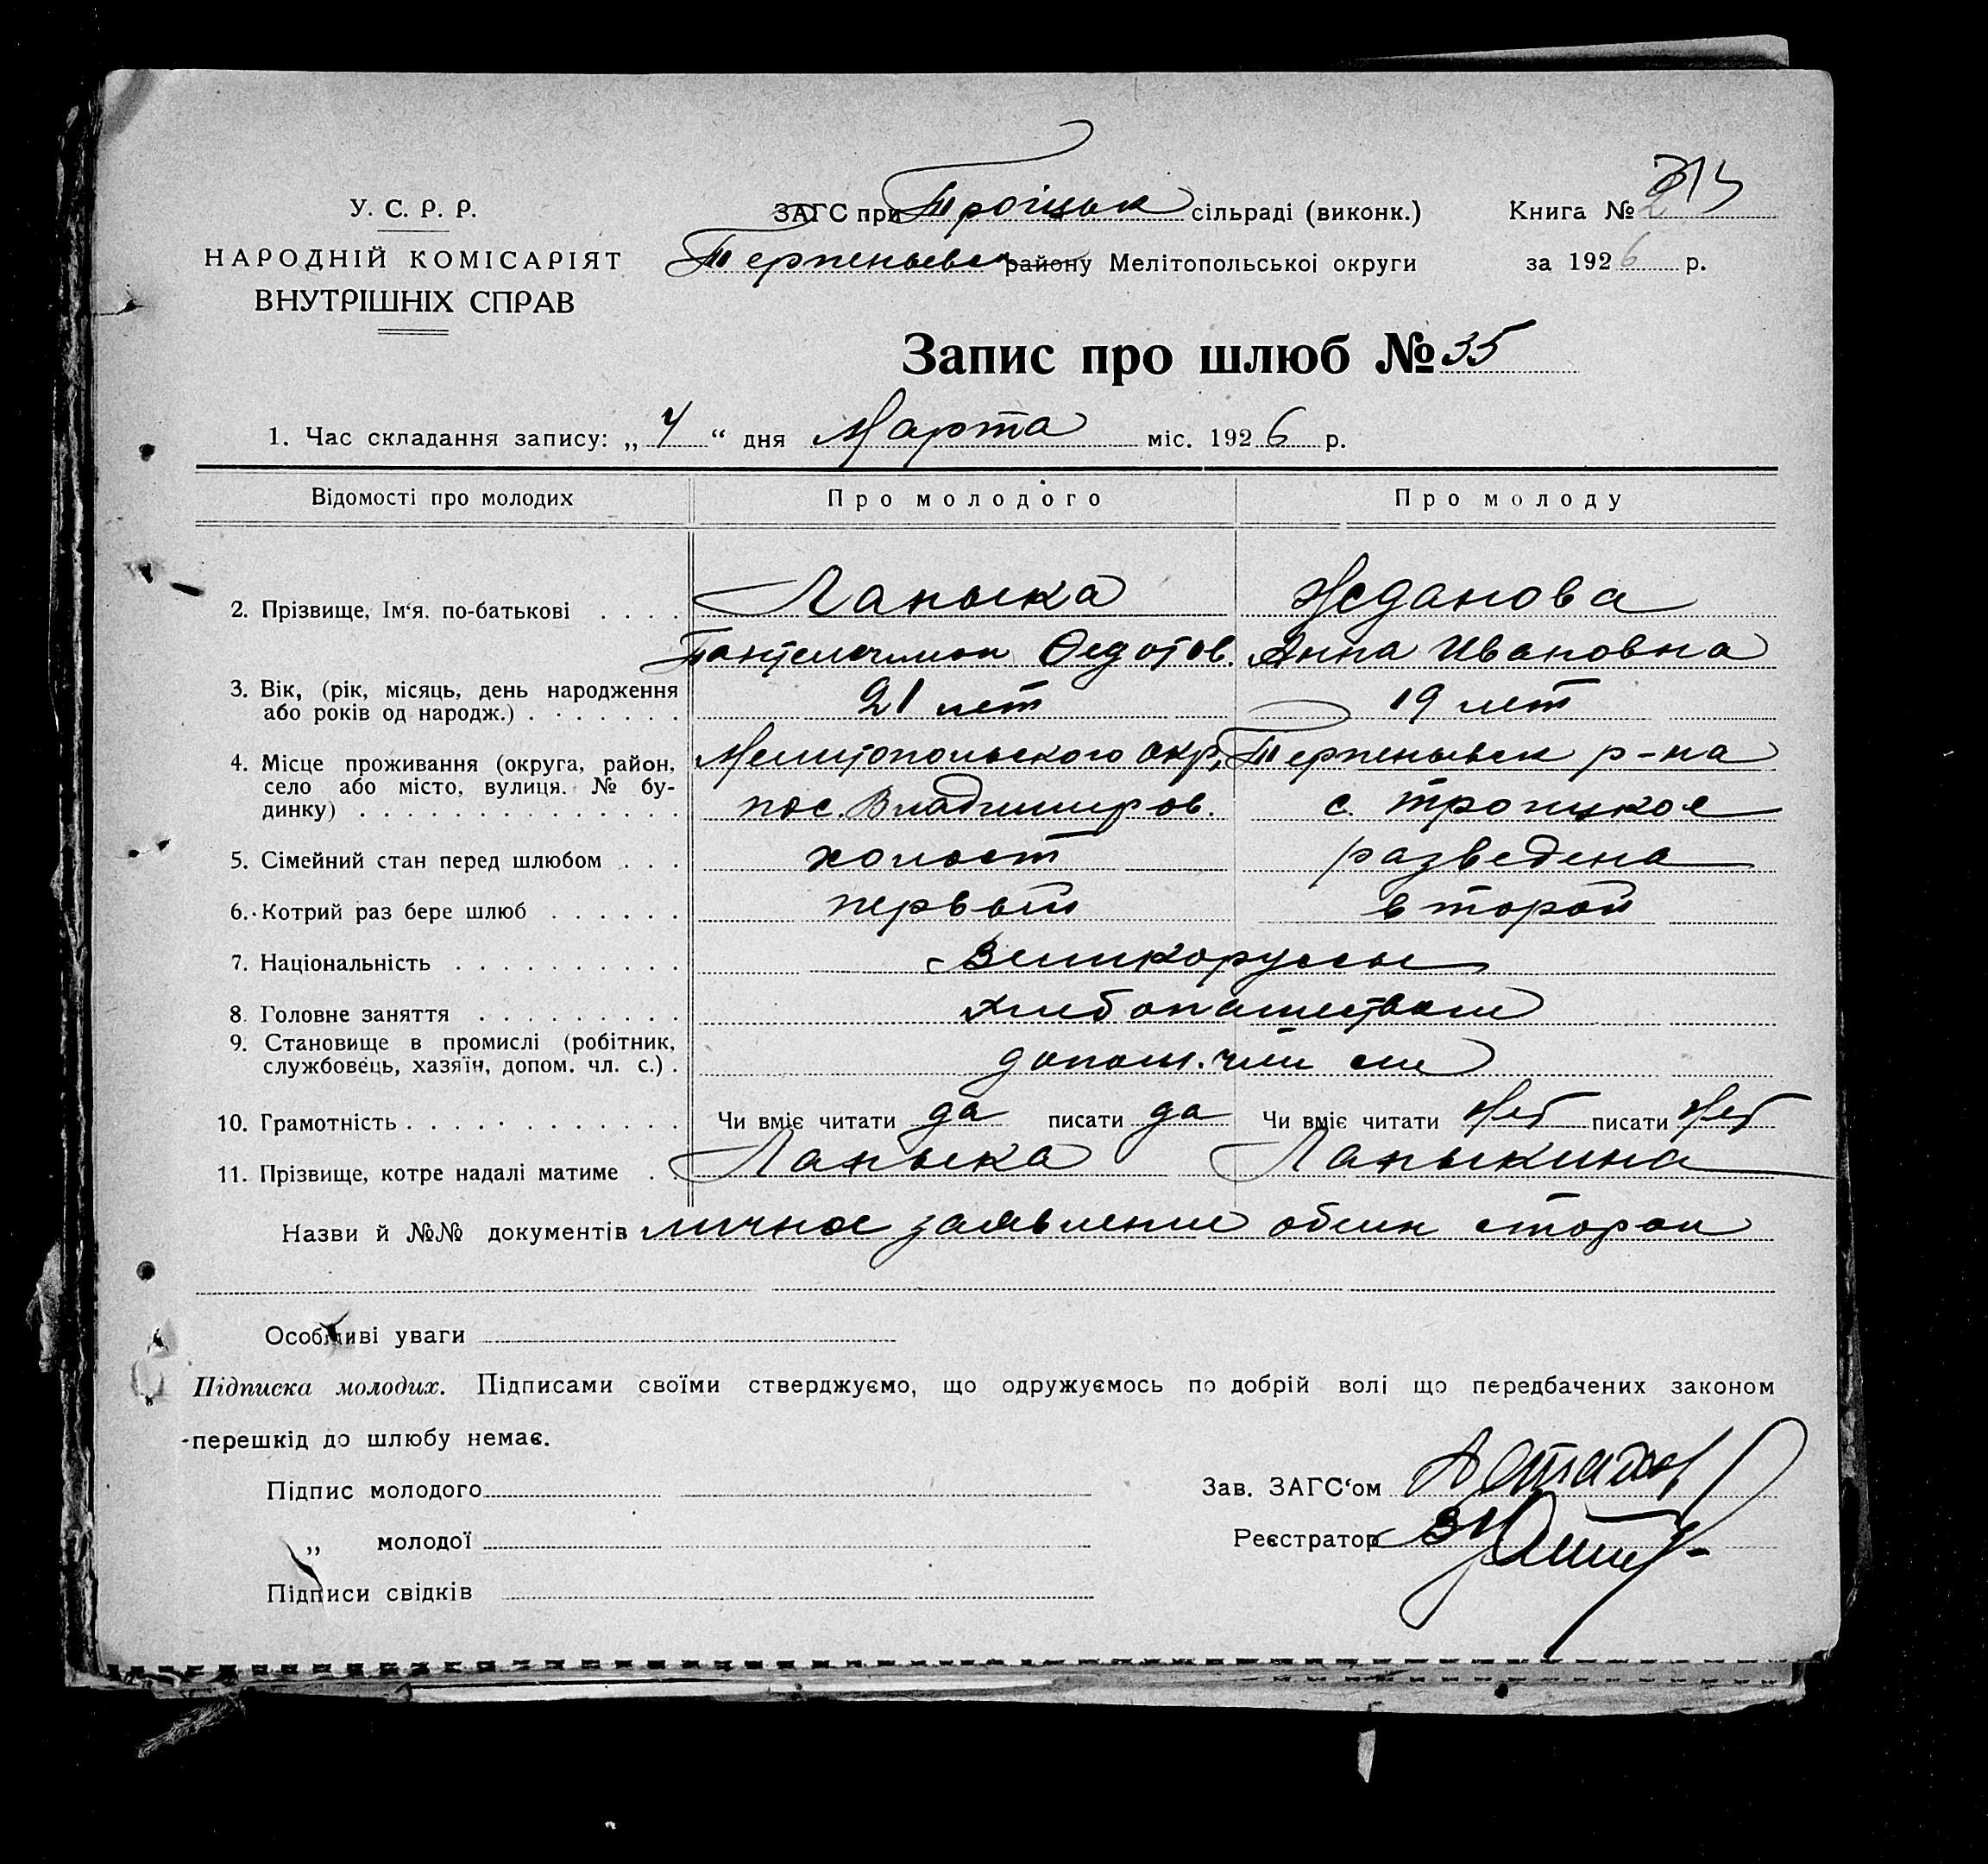 У. С. Р. Р.
НАРОДНІЙ КОМІСАРІЯТ
ВНУТРІШНІХ СПРАВ
ЗАГС при Троїцьк сільраді (виконк.)
Терпеньевск району Мелітопольської округи
Книга № 2
за 1926 р.
Запис про шлюб № 35
1. Час складання запису: „ 4 “ дня Марта міс. 1926 р.
Відомості про молодих Про молодого Про молоду
2. Прізвище, Ім‘я. по-батькові . . . . Лапыка Жданова
Пантелеимон Федотов. Анна Ивановна
3. Вік, (рік, місяць, день народження
або років од народж.) . . . . . . . 21 лет 19 лет
4. Місце проживання (округа, район, Мелитопольского окр, Терпеньевск р-на
село або місто, вулиця. № бу-
динку) . . . . . . . . . . . . . . пос. Владимиров. с. Троицкое
5. Сімейний стан перед шлюбом . . . холост разведена
6. Котрий раз бере шлюб . . . . . . первый второй
7. Національність . . . . . . . . . . Великоруссы
8. Головне заняття . . . . . . . . . хлебопашество
9. Становище в промислі (робітник,
службовець, хазяїн, допом. чл. с.) . допом. член
10. Грамотність . . . . . . . . . . . . Чи вміє читати да писати да Чи вміє читати нет писати нет
11. Прізвище, котре надалі матиме . . Лапыка Лапыкина
Назви й №№ документів личное заявление обеих сторон
Особливі уваги
Підписка молодих. Підписами своїми стверджуємо, що одружуємось по добрій волі що передбачених законом
перешкід до шлюбу немає.
Підпис молодого
„ молодої
Підписи свідків
Зав. ЗАГС‘ом
Реєстратор